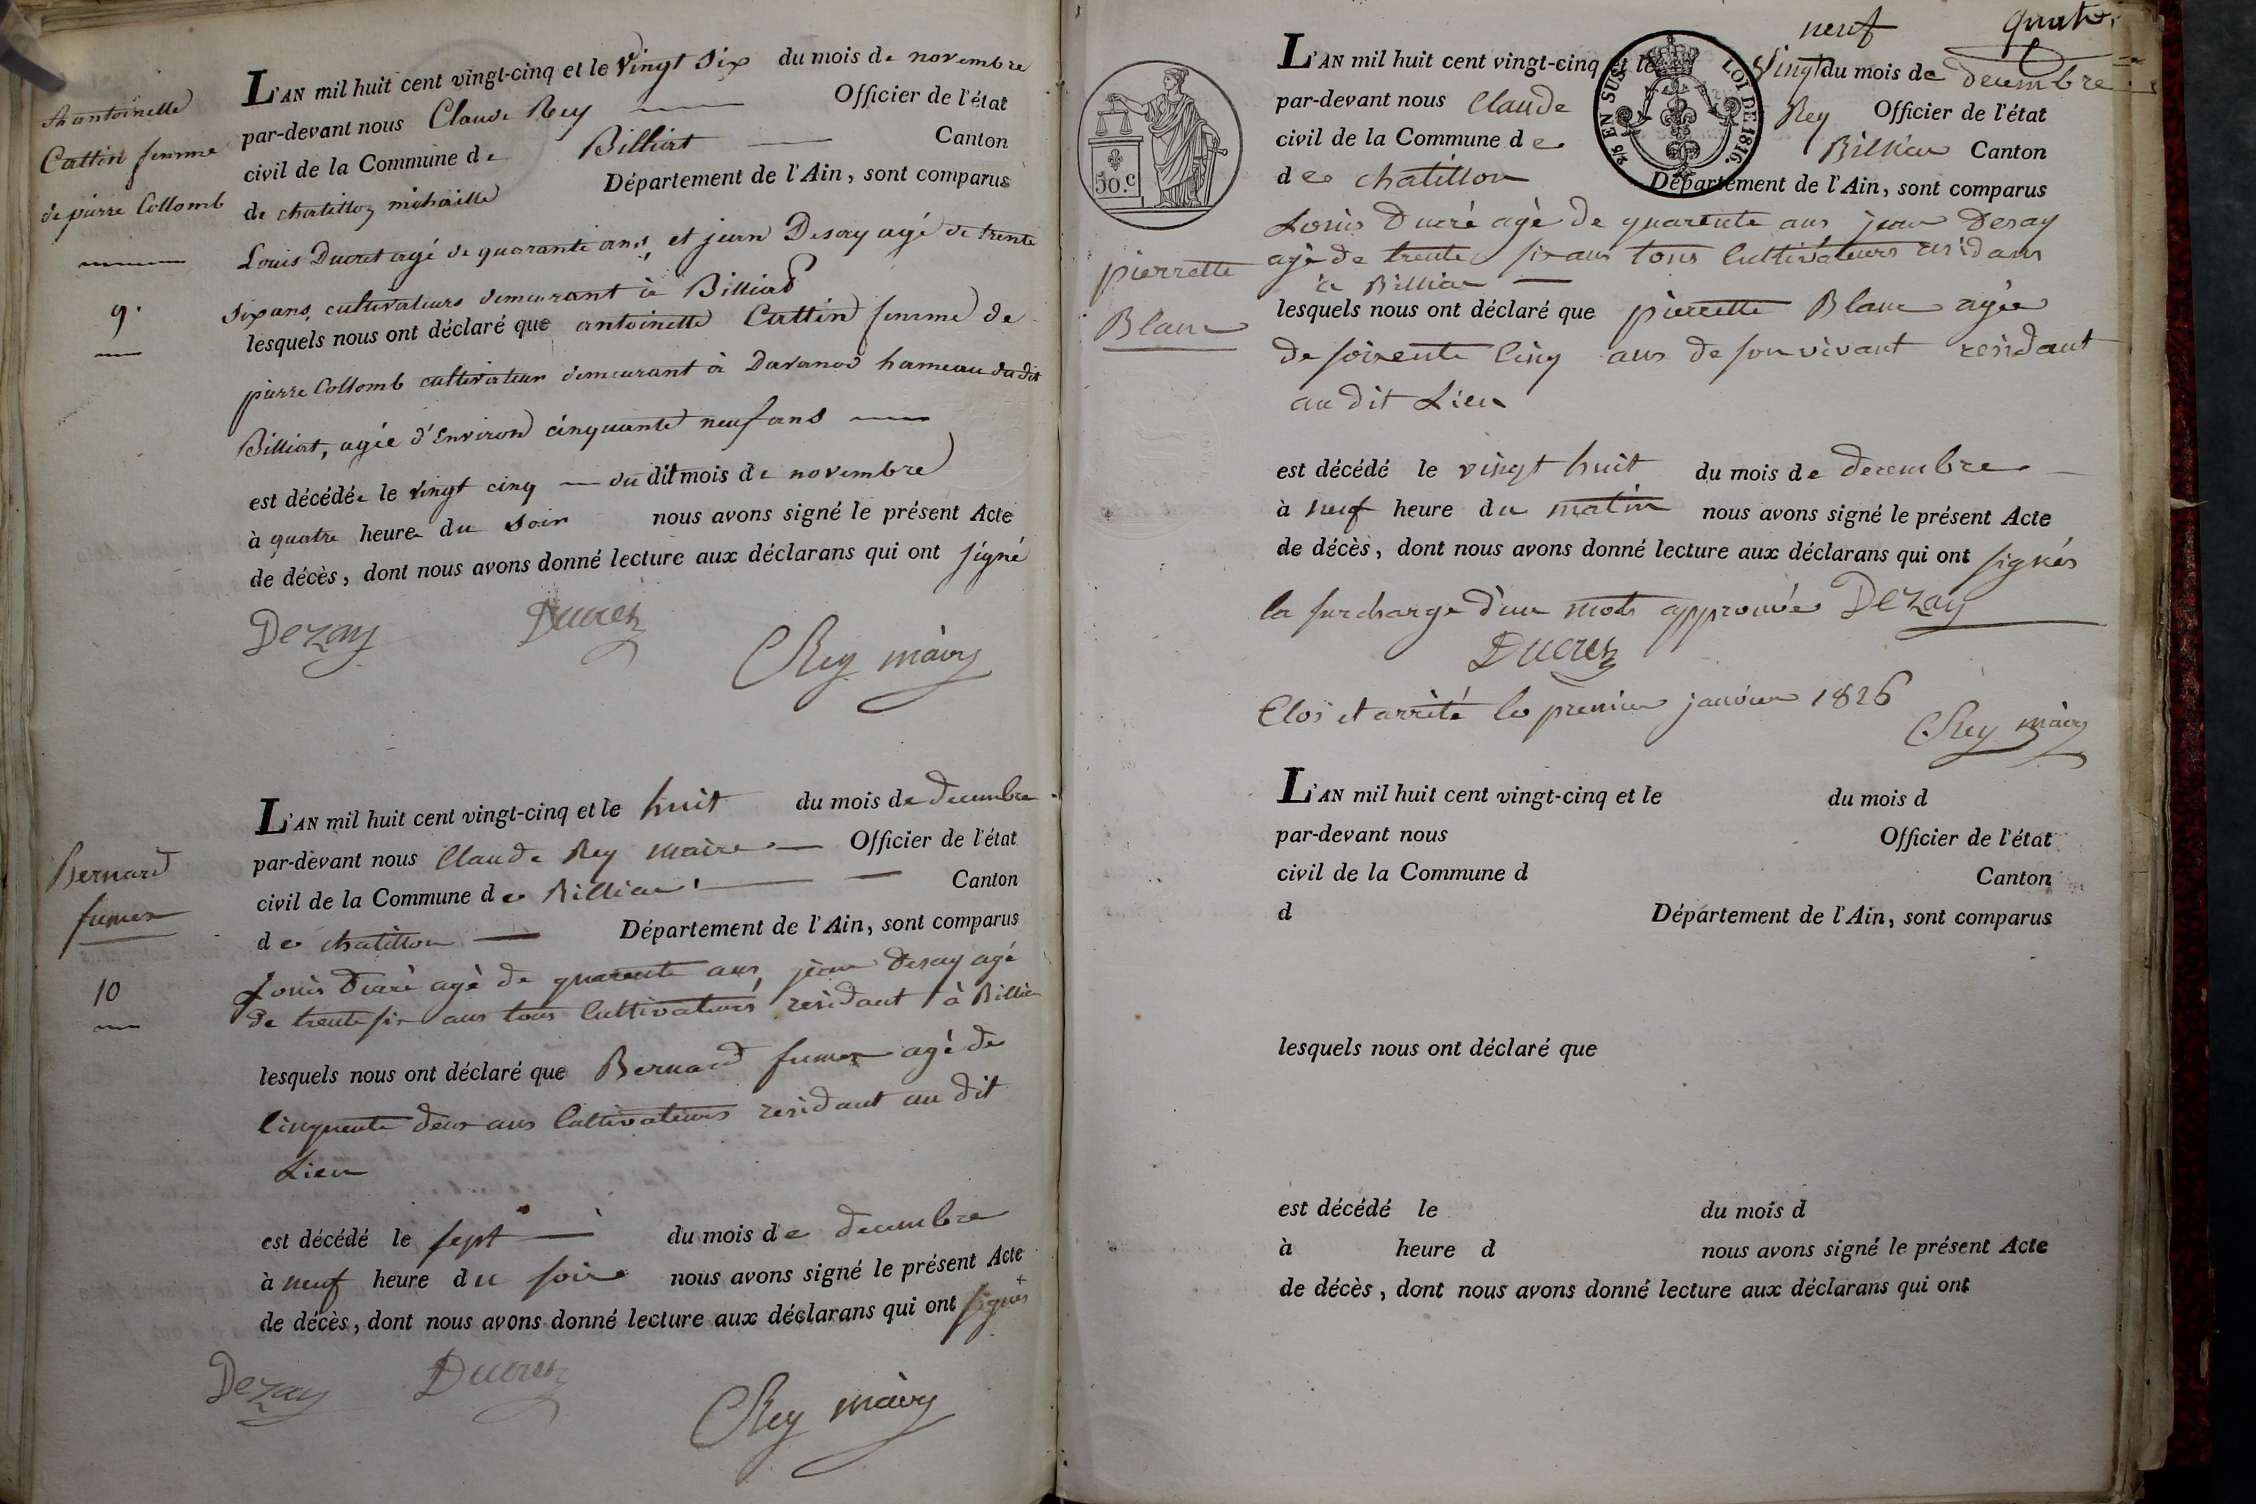 Antoinette
Cattin femme
de pierre Collomb
9.
L'AN mil huit cent vingt-cinq et le vingt six du mois de novembre
par-devant nous Claude Rey Officier de l'état
civil de la Commune de Billiat Canton
de chatillon michaille Département de l'Ain, sont comparus
Louis Ducret agé de quarante ans, et jean Desay agé de trente
six ans, cultivateurs demeurant à Billiat
lesquels nous ont déclaré que antoinette Cattin femme de
pierre Collomb cultivateur demeurant à Davanod hameau du dit
Billiat, agée d'Environ cinquante neuf ans
est décédée le vingt cinq du dit mois de novembre
à quatre heure du soir nous avons signé le présent Acte
de décès, dont nous avons donné lecture aux déclarans qui ont signé
Dezay Ducret
CRey maire
Bernard
fumex
10
L'AN mil huit cent vingt-cinq et le huit du mois de decembre
par-devant nous Claude Rey maire Officier de l'état
civil de la Commune de Billiat Canton
de chatillon Département de l'Ain, sont comparus
Louis Ducré agè de quarente ans, jean Desay agé
de trente six ans tous Cultivateurs residant à Billia
lesquels nous ont déclaré que Bernard fumex agè de
Cinquente deux ans Cultivateurs residant au dit
Lieu
est décédé le sept du mois de decembre
à neuf heure du soir nous avons signé le présent Acte
de décès, dont nous avons donné lecture aux déclarans qui ont signés
Dezay Ducret
CRey maire
neuf quatre
L'AN mil huit cent vingt-cinq et le vingt du mois de decembre
par-devant nous Claude Rey Officier de l'état
civil de la Commune de Billiat Canton
de chatillon Département de l'Ain, sont comparus
50.c
2/5 EN SUS. LOI DE 1816.
Louis Ducré agè de quarente ans jean Desay
agè de trente six ans tous Cultivateurs residans
à Billiat
pierrette
Blanc
lesquels nous ont déclaré que pierrette Blanc agée
de soixente Cinq ans de son vivant residant
au dit Lieu
est décédé le vingt huit du mois de decembre
à neuf heure du matin nous avons signé le présent Acte
de décès, dont nous avons donné lecture aux déclarans qui ont signés
la surcharge d'un mots approuvée Dezay
Ducret
Clos et arrêté le premier janvier 1826
CRey maire
L'AN mil huit cent vingt-cinq et le du mois d
par-devant nous Officier de l'état
civil de la Commune d Canton
d Département de l'Ain, sont comparus
lesquels nous ont déclaré que
est décédé le du mois d
à heure d nous avons signé le présent Acte
de décès, dont nous avons donné lecture aux déclarans qui ont